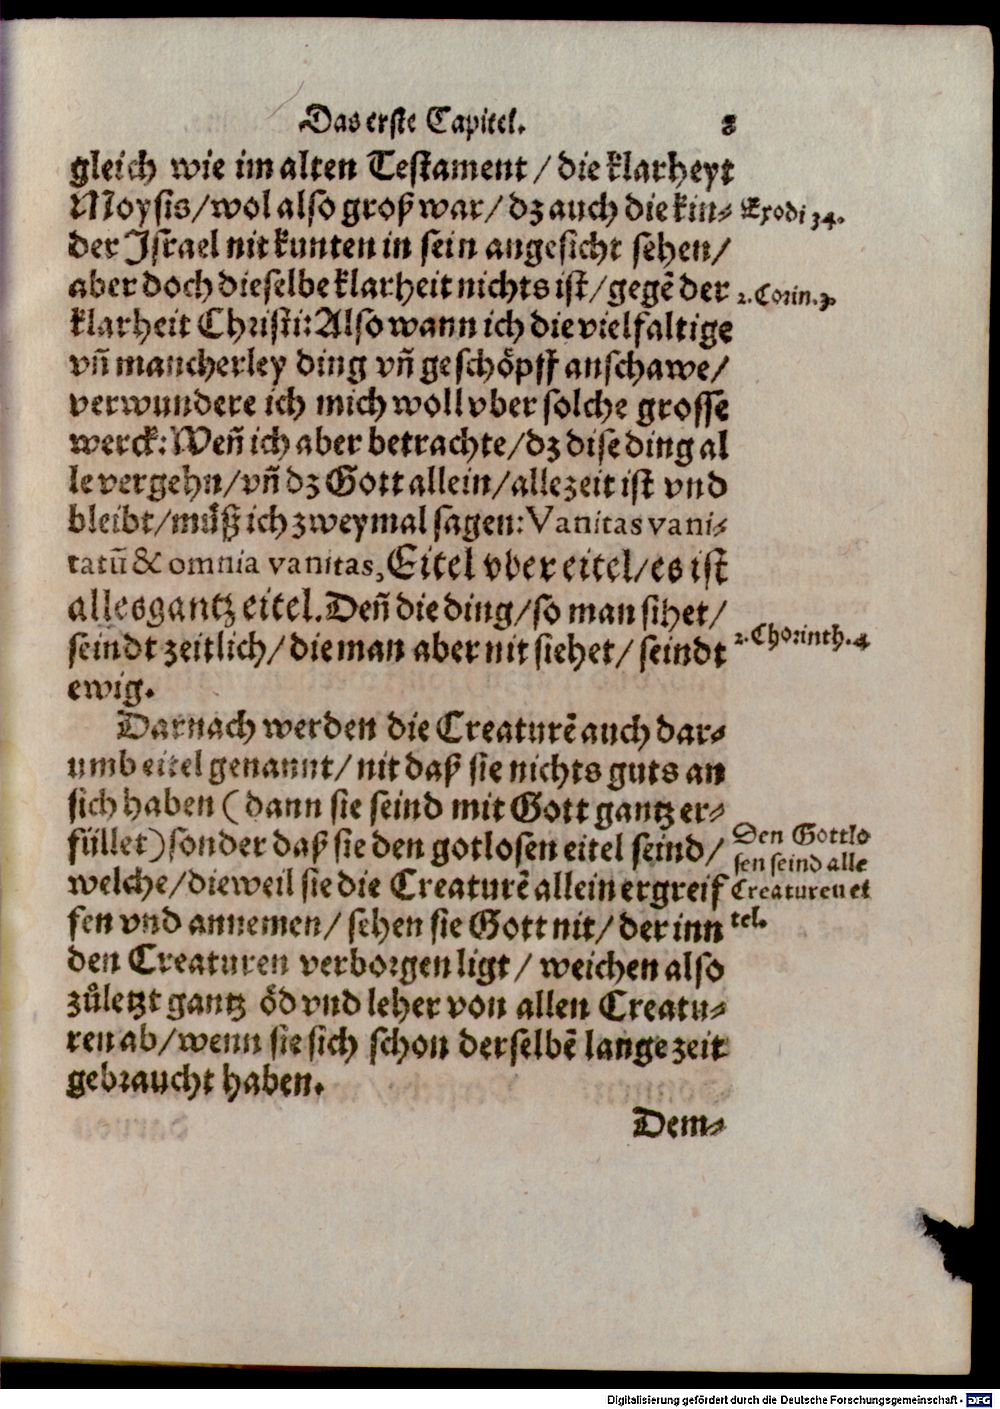 Das erste Capitel. 8
gleich wie im alten Testament / die klarheyt
Moysis/wol also groß war/ dz auch die kin⸗
Exodi 34.
der Israel nit kunten in sein angesicht sehen/
aber doch dieselbe klarheit nichts ist/gegẽ der
2. Corin. 3.
klarheit Christi: Also wann ich die vielfaltige
vñ mancherley ding vñ geschöpff anschawe/
verwundere ich mich woll vber solche grosse
werck: Weñ ich aber betrachte/dz dise ding al
le vergehn/vñ dz Gott allein/allezeit ist vnd
bleibt/můß ich zweymal sagen: Vanitas vani⸗
tatũ & omnia vanitas, Eitel vber eitel/es ist
alles gantz eitel. Deñ die ding/so man sihet/
seindt zeitlich/die man aber nit siehet/ seindt
2. Chorinth. 4
ewig.
Darnach werden die Creaturẽ auch dar⸗
umb eitel genannt/ nit daß sie nichts guts an
sich haben (dann sie seind mit Gott gantz er⸗
füllet) sonder daß sie den gotlosen eitel seind/
Den Gottlo
sen seind alle
Creaturen ei
tel.
welche/dieweil sie die Creaturẽ allein ergreif
fen vnd annemen/ sehen sie Gott nit/ der inn
den Creaturen verborgen ligt/ weichen also
zůletzt gantz öd vnd leher von allen Creatu⸗
ren ab/wenn sie sich schon derselbẽ lange zeit
gebraucht haben.
Dem⸗
Digitalisierung gefördert durch die Deutsche Forschungsgemeinschaft - DFG